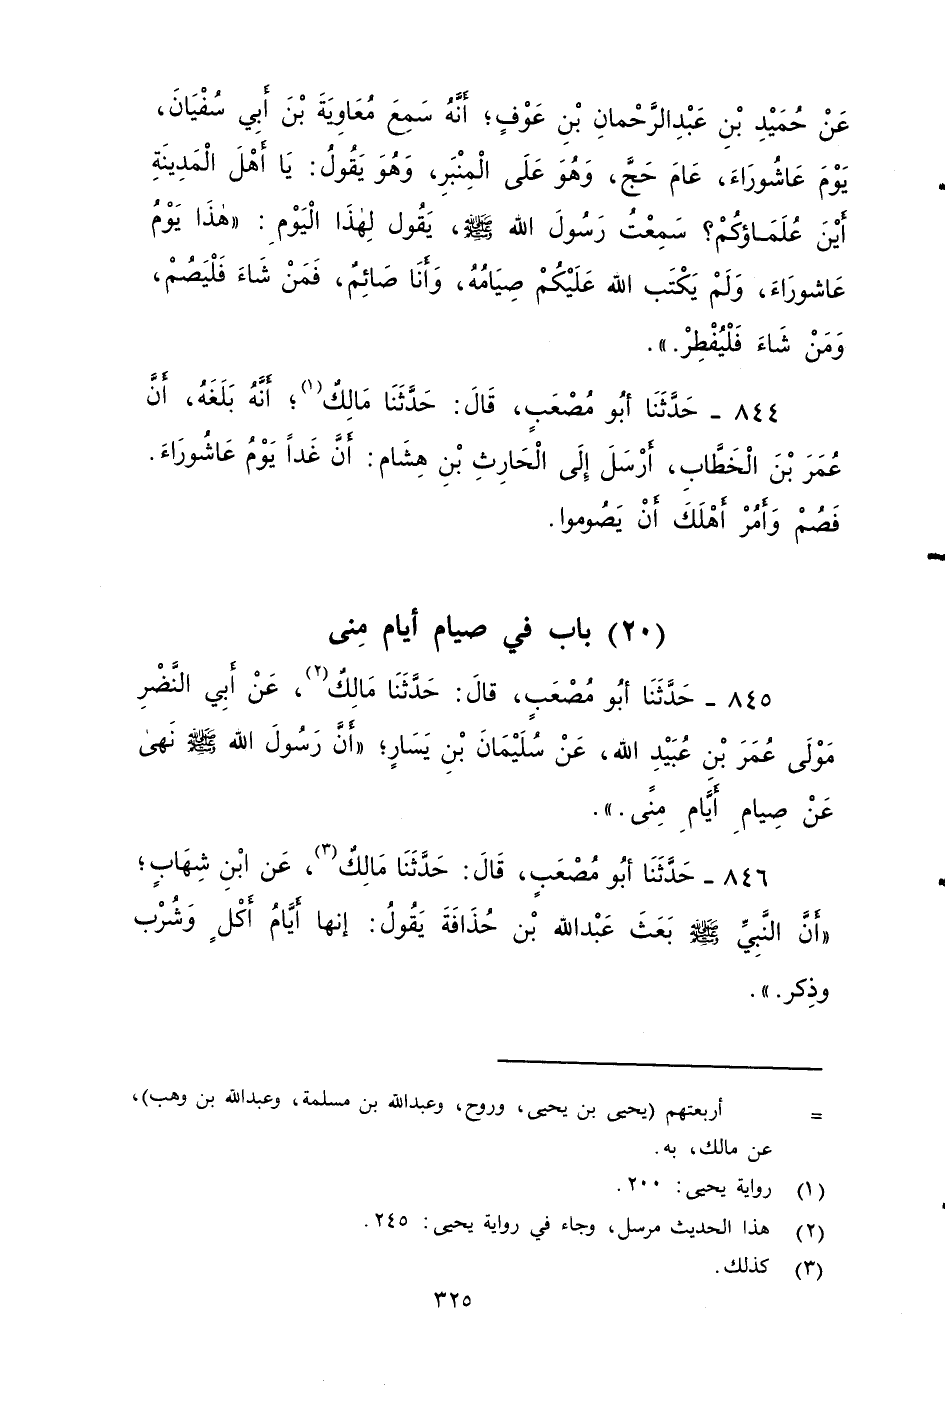 عَنْ حُمَيْدِ بْنِ عَبْدِالرَّحْمانِ بْنِ عَوْفٍ؛ أَنَّهُ سَمِعَ مُعَاوِيَةَ بْنَ أَبِي سُفْيَانَ،
يَوْمَ عَاشُورَاءَ، عَامَ حَجَّ، وَهُوَ عَلَى الْمِنْبَرِ، وَهُوَ يَقُولُ: يَا أَهْلَ الْمَدِينَةِ
أَيْنَ عُلَمَاؤكُمْ؟ سَمِعْتُ رَسُولَ الله ﷺ، يَقُول لِهٰذَا الْيَوْمِ: «هٰذَا يَوْمُ
عَاشورَاءَ، وَلَمْ يَكْتَب الله عَلَيْكُمْ صِيَامُهُ، وَأَنَا صَائِمٌ، فَمَنْ شَاءَ فَلْيَصُمْ،
وَمَنْ شَاءَ فَلْيُفْطِرْ.».
٨٤٤ - حَدَّثَنَا أبُو مُصْعَبٍ، قَالَ: حَدَّثَنَا مَالِكٌ(١)؛ أَنَّهُ بَلَغَهُ، أَنَّ
عُمَرَ بْنَ الْخَطَّابِ، أَرْسَلَ إِلَى الْحَارِثِ بْنِ هِشَام: أَنَّ غَداً يَوْمُ عَاشُورَاءَ.
فَصُمْ وَأْمُرْ أَهْلَكَ أَنْ يَصُوموا.
(٢٠) باب في صيام أيام مِنى
٨٤٥ - حَدَّثَنَا أبُو مُصْعَبٍ، قالَ: حَدَّثَنَا مَالِكٌ(٢)، عَنْ أَبِي النَّضْرِ
مَوْلَى عُمَرَ بْنِ عُبَيْدِ الله، عَنْ سُلَيْمَانَ بْنِ يَسَارٍ؛ «أَنَّ رَسُولَ الله ﷺ نَهىٰ
عَنْ صِيامِ أَيَّامِ مِنًى.».
٨٤٦ - حَدَّثَنَا أبُو مُصْعَبٍ، قَالَ: حَدَّثَنَا مَالِكٌ(٣)، عَن ابْنِ شِهَابٍ؛
«أَنَّ النَّبِيِّ ﷺ بَعَثَ عَبْدالله بْن حُذَافَةَ يَقُولُ: إنها أَيَّامُ أَكْلٍ وَشُرْب
وذِكر.».
= أربعتهم (يحيى بن يحيى، وروح، وعبدالله بن مسلمة، وعبدالله بن وهب)،
عن مالك، به.
(١) رواية يحيى: ٢٠٠.
(٢) هذا الحديث مرسل، وجاء في رواية يحيى: ٢٤٥.
(٣) كذلك.
٣٢٥